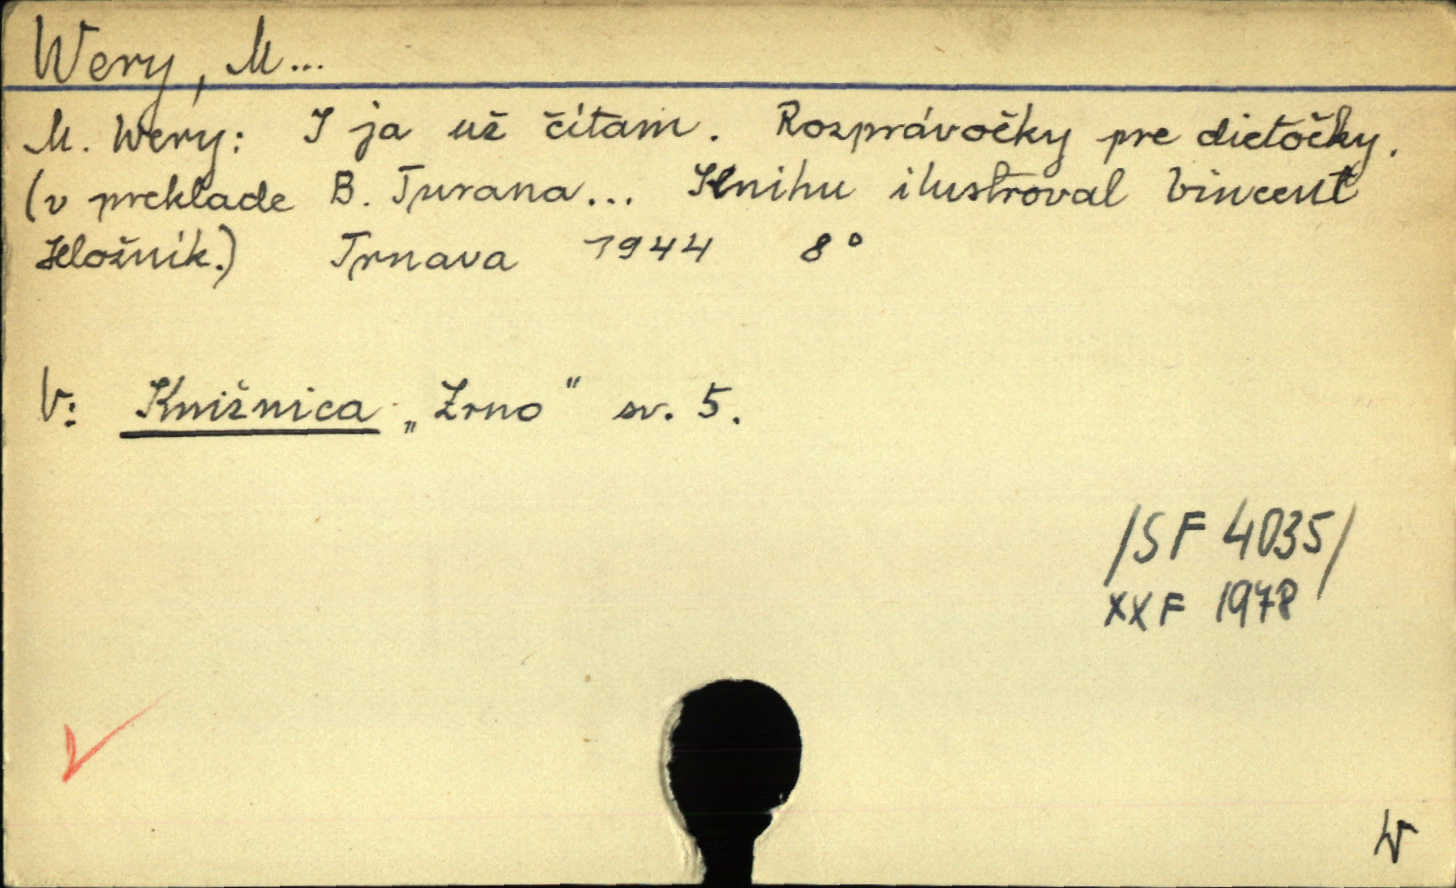 Wery, M...
M. Wery: I ja už čítam. Rozprávočky pre dietočky.
(v preklade B. Turana... Knihu ilustroval Vincent
Hložník.) Trnava 1944 8°
V: Knižnica „Zrno" sv. 5.
/SF 4035/
XXF 1978
W